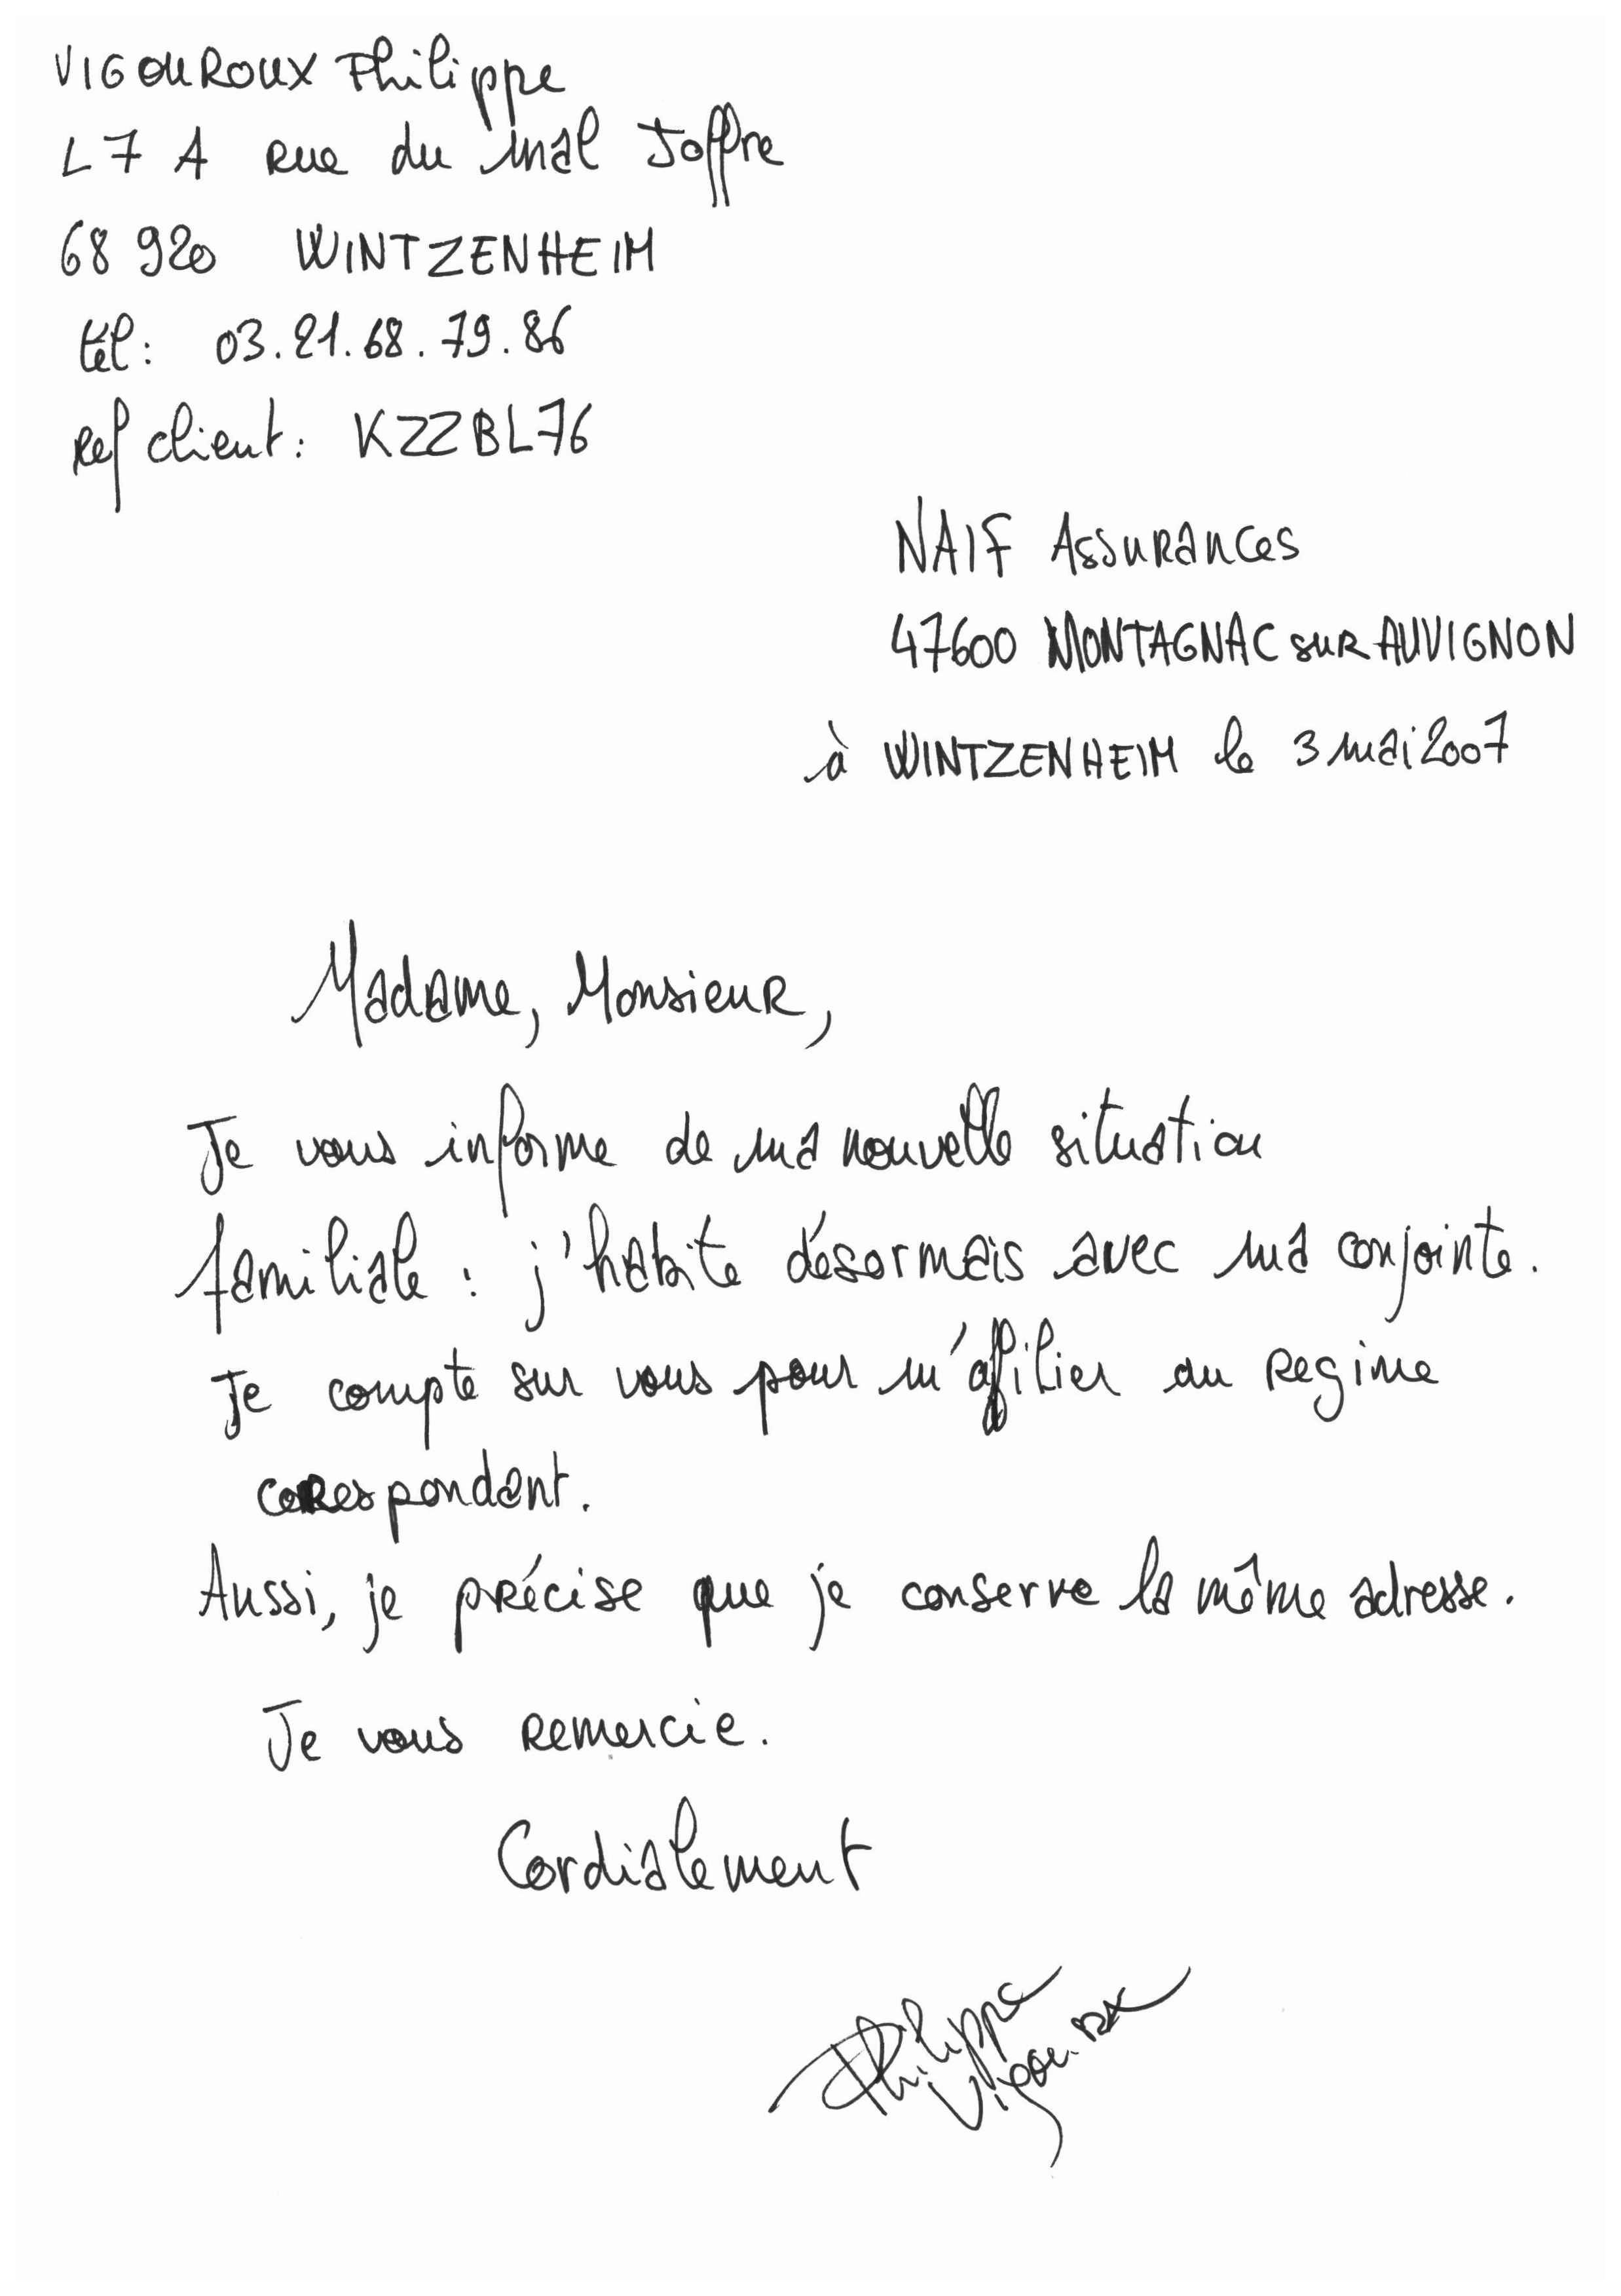 VIGOUROUX Philippe
L7 A rue du mal Joffre
68 920 WINTZENHEIM
tél : 03.21.68.79.86
Ref client : KZZBL76
NAIF Assurances
47600 MONTAGNAC sur AUVIGNON
à WINTZENHEIM le 3 mai 2007
Madame, Monsieur,
Je vous informe de ma nouvelle situation
familiale : j'habite désormais avec ma conjointe.
Je compte sur vous pour m'affilier au Regime
corespondant.
Aussi, je précise que je conserve la même adresse.
Je vous remercie.
Cordialement
Philippe